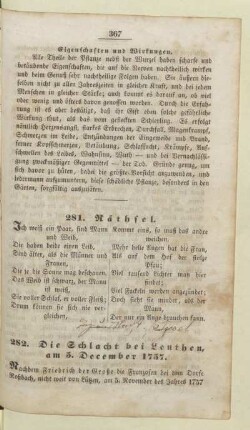 367
Eigenschaften und Wirkungen.
Alle Theile der Pflanze nächst der Wurzel haben scharfe und
betäubende Eigenschaften, die auf die Nerven nachtheilich wirken
und beim Genuß sehr nachtheilige Folgen haben. Sie äußern die-
selben nicht zu allen Jahreszeiten in gleicher Kraft, und bei jedem
Menschen in gleicher Stärke; auch kommt es darauf an, ob viel
oder wenig und öfters davon genossen worden. Durch die Erfah-
rung ist es aber bestätigt, daß der
gefährlicher ist, als das vom gekochten Schierling. Es erfolgt
nämlich Herzensangst, darauf Erbrechen, Durchfall, Magenkrampf,
Schmerz im Leibe, Entzündung der Eingeweide, der Brand,
ferner Kopfschmerzen, Betäubung, Schwindel, Schlafsucht,
Auftreiben des Leibes, Wahnsinn, Wuth — und bei Vernachlässi-
gung zweckmäßiger Gegenmittel — der Tod. Gründe genug, um
sich davor zu hüten, wobei die größte Vorsicht anzuwenden, und
darauf bedacht zu sein, diese schädliche Pflanze, besonders in den
Gärten, sorgfältig auszurotten.
281. Räthsel.
Ich weiß ein Paar, sind Mann
und Weib,
Die haben beide einen Leib.
Sind älter, als die Männer und
Frauen,
Die je die Sonne mag beschauen.
Das Weib ist schwarz, der Mann
ist weiß,
Sie voller Schlaf, er voller Fleiß;
Drum können sie sich nie ver-
gleichen,
Kommt eins, so muß das andre
weichen;
Mehr helle Augen hat die Frau,
Als auf dem Hof der stolze
Pfau;
Viel tausend Lichter man hier
findet,
Viel Fackeln werden angezündet;
Doch sind sie nicht so groß und
schön,
Der nur ein Auge brauchen kann.
282. Die Schlacht bei Leuthen,
am 5. December 1757.
Nachdem Friedrich der Große die Franzosen bei dem Dorfe
Roßbach, nicht weit von Lützen, am 5 November des Jahres 1757